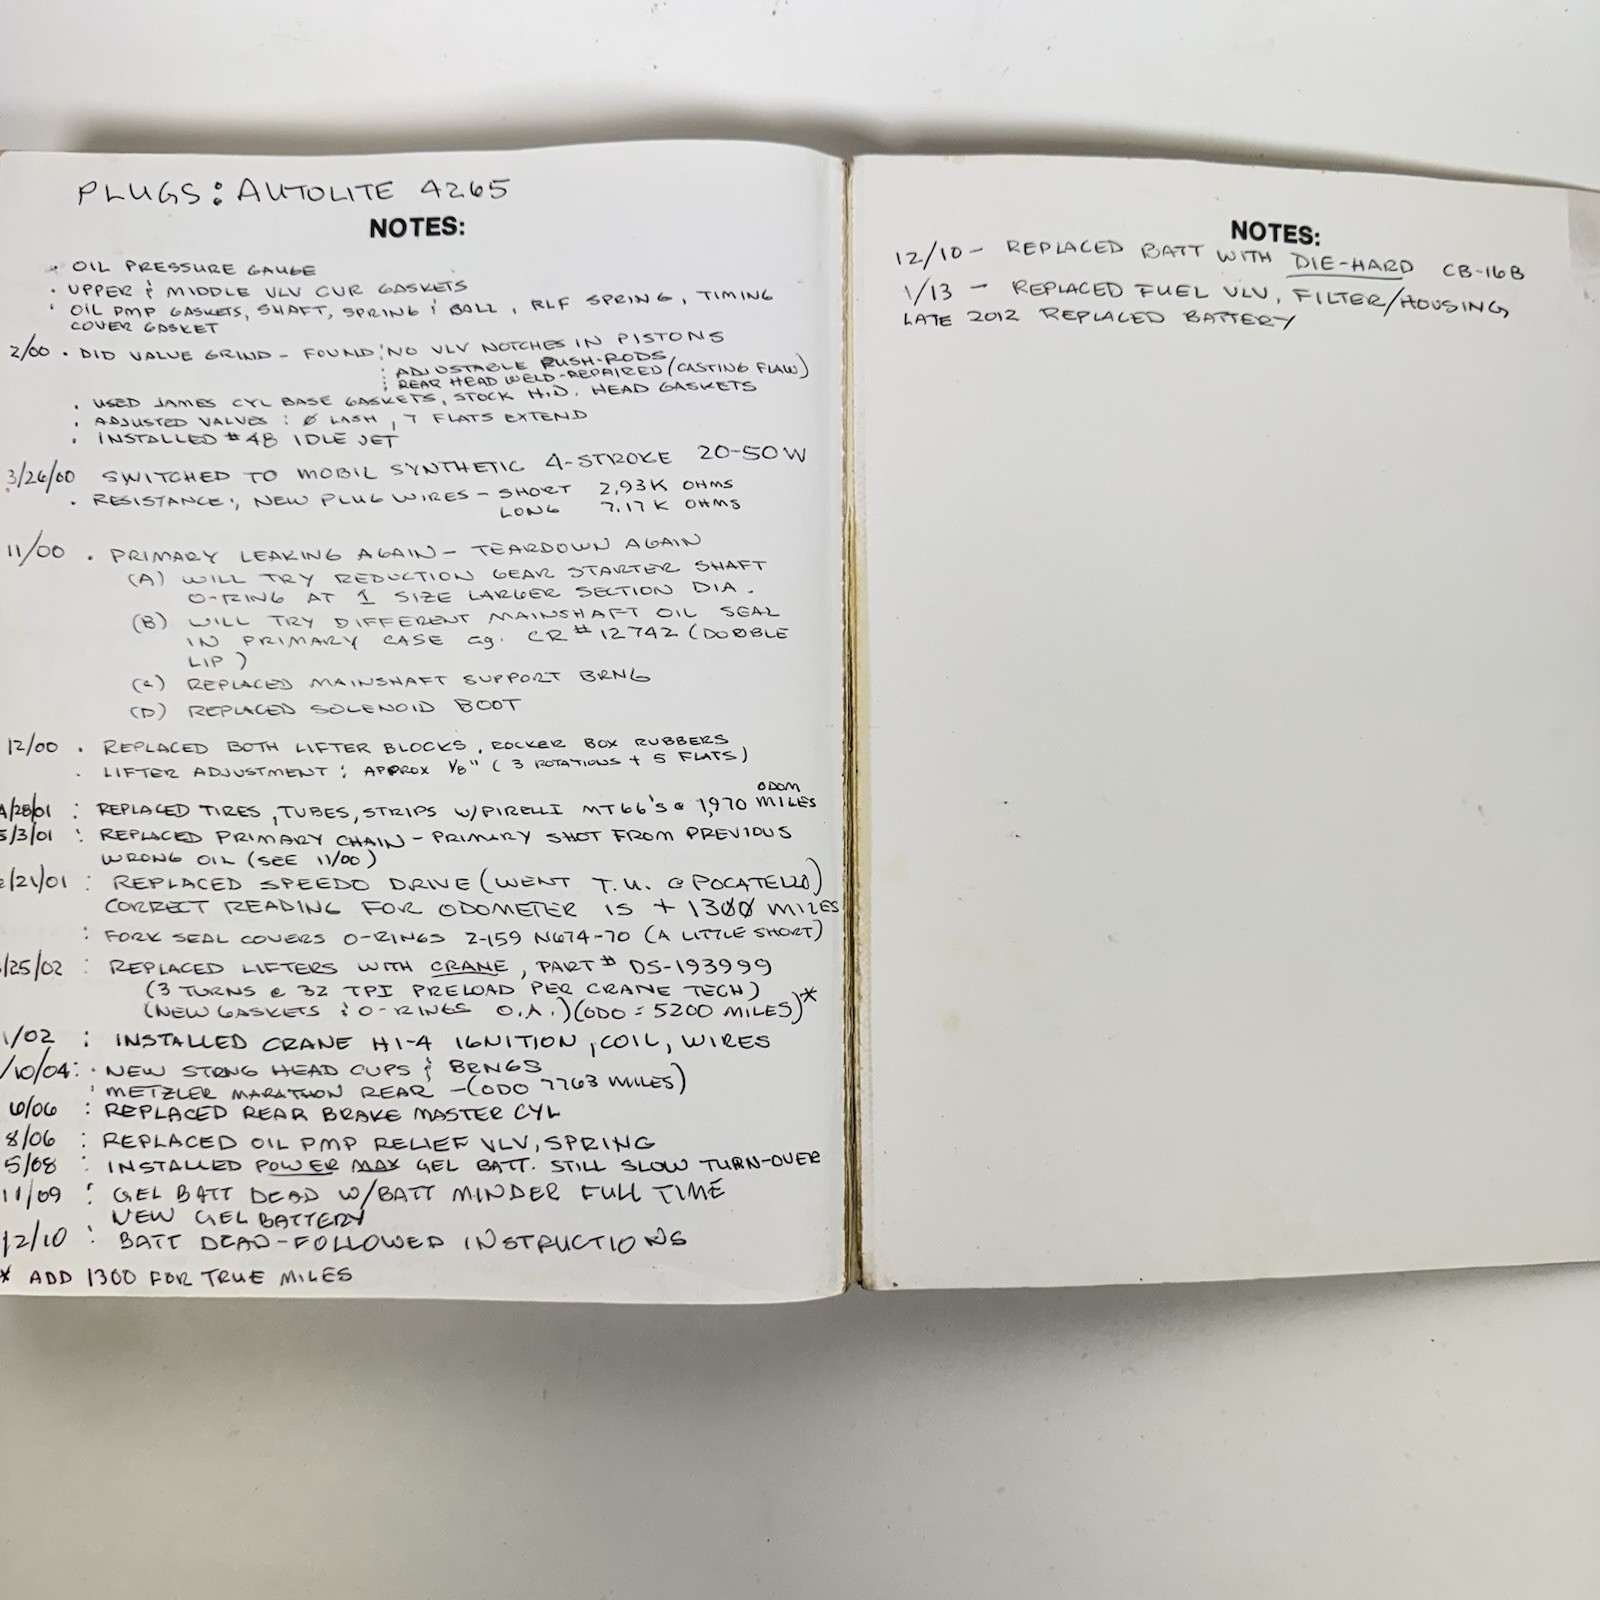 PLUGS: AUTOLITE 4265
NOTES:
• OIL PRESSURE GAUGE
• UPPER & MIDDLE VLV CVR GASKETS
• OIL PMP GASKETS, SHAFT, SPRING & BALL, RLF SPRING, TIMING
COVER GASKET
2/00 • DID VALUE GRIND - FOUND: NO VLV NOTCHES IN PISTONS
: ADJUSTABLE PUSH-RODS
: REAR HEAD WELD-REPAIRED (CASTING FLAW)
• USED JAMES CYL BASE GASKETS, STOCK H.D. HEAD GASKETS
• ADJUSTED VALVES: Ø LASH, 7 FLATS EXTEND
• INSTALLED #48 IDLE JET
3/26/00 SWITCHED TO MOBIL SYNTHETIC 4-STROKE 20-50W
• RESISTANCE:, NEW PLUG WIRES - SHORT 2.93K OHMS
LONG 7.17K OHMS
11/00 • PRIMARY LEAKING AGAIN - TEARDOWN AGAIN
(A) WILL TRY REDUCTION GEAR STARTER SHAFT
O-RING AT 1 SIZE LARGER SECTION DIA.
(B) WILL TRY DIFFERENT MAINSHAFT OIL SEAL
IN PRIMARY CASE eg. CR#12742 (DOUBLE
LIP)
(C) REPLACED MAINSHAFT SUPPORT BRNG
(D) REPLACED SOLENOID BOOT
12/00 • REPLACED BOTH LIFTER BLOCKS, ROCKER BOX RUBBERS
• LIFTER ADJUSTMENT: APPROX 1/8" (3 ROTATIONS + 5 FLATS)
4/28/01 : REPLACED TIRES, TUBES, STRIPS W/PIRELLI MT66's @ 1,970 ODOM MILES
5/3/01 : REPLACED PRIMARY CHAIN - PRIMARY SHOT FROM PREVIOUS
WRONG OIL (SEE 11/00)
/21/01 : REPLACED SPEEDO DRIVE (WENT T.U. @ POCATELLO)
CORRECT READING FOR ODOMETER IS + 13ØØ MILES
: FORK SEAL COVERS O-RINGS 2-159 N674-70 (A LITTLE SHORT)
/25/02 : REPLACED LIFTERS WITH CRANE, PART# DS-193999
(3 TURNS @ 32 TPI PRELOAD PER CRANE TECH)
(NEW GASKETS & O-RINGS O.A.)(ODO = 5200 MILES)*
1/02 : INSTALLED CRANE HI-4 IGNITION, COIL, WIRES
/10/04: • NEW STRNG HEAD CUPS & BRNGS
: METZLER MARATHON REAR - (ODO 7763 MILES)
6/06 : REPLACED REAR BRAKE MASTER CYL
8/06 : REPLACED OIL PMP RELIEF VLV, SPRING
5/08 : INSTALLED POWER MAX GEL BATT. STILL SLOW TURN-OVER
11/09 : GEL BATT DEAD W/BATT MINDER FULL TIME
NEW GEL BATTERY
12/10 : BATT DEAD-FOLLOWED INSTRUCTIONS
* ADD 1300 FOR TRUE MILES
NOTES:
12/10 - REPLACED BATT WITH DIE-HARD CB-16B
1/13 - REPLACED FUEL VLV, FILTER/HOUSING
LATE 2012 REPLACED BATTERY